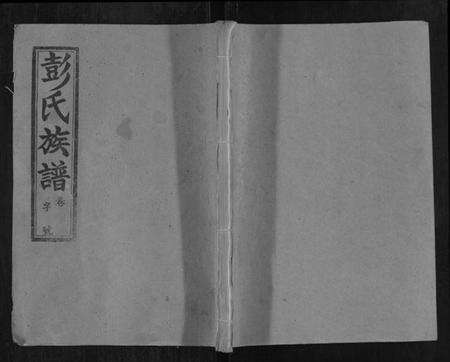 彭氏族譜
卷
字號